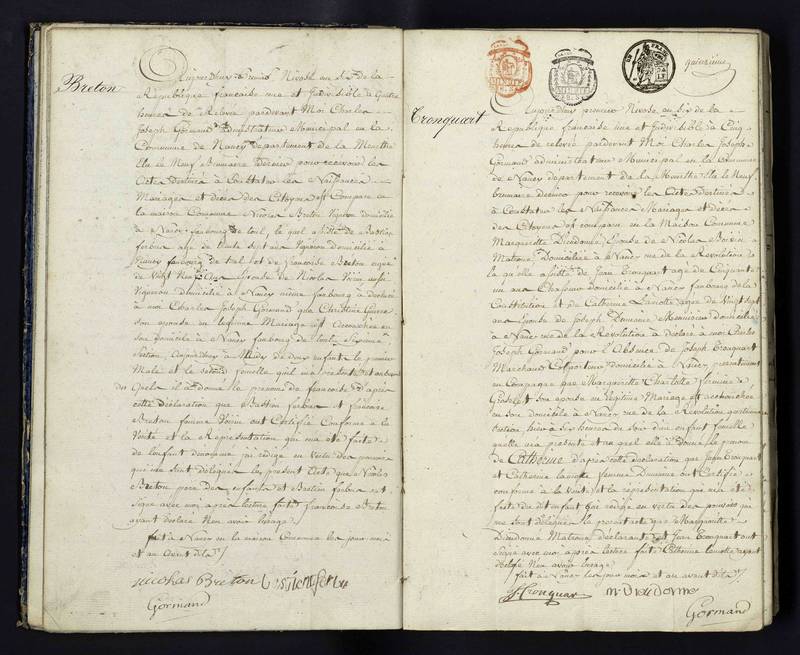 Breton
Aujourd'hui premier Nivose an six de la
République francaise une et Indivisible à quatre
heures de relevée pardevant Moi Charles
Joseph Gormand administrateur Municipal en la
Commune de Nancy departement de la Meurthe
Elu le Neuf Brumaire dernier pour recevoir les
Actes destinés à Constater les Naissances
Mariages et décès des Citoyens est Comparu en
la maison Commune Nicolas Breton Vigneron domicilié
à Nancy faubourg de toul, le quel assisté de Bastien
ferber agé de trente sept ans Vigneron domicilié à
Nancy faubourg de toul et de francoise Breton agée
de Vingt Neuf ans Epouse de Nicolas
Vigneron domicilié à Nancy même faubourg à déclaré
à moi Charles Joseph Gormand que Christine
son epouse en legitime Mariage est accouchée en
son domicile à Nancy faubourg de toul Sixieme
Section, Aujourd'huy à Midy de deux enfants le premier
Male et le second femelle qu'il m'a
il à donné le prenom de francoise d'après
cette déclaration que Bastien ferber et francoise
Breton femme ont Certifié Conforme à la
Vérité et la Représentation qui m'a été faite
de l'enfant denommé j'ai rédigé en Vertu des pouvoirs
qui me sont délégués le présent Acte que Nicolas
Breton pere des enfants et Bastien ferber ont
signé avec moi après lecture faite francoise Breton
ayant declaré Ne avoir l'usage
fait à Nancy en la maison Commune les jour mois
et an avant dits
nicolas Breton bastien ferber
Gormand
quinzieme
Tronquart
Aujourd'hui premier Nivose an six de la
République francaise une et Indivisible à Cinq
heures de relevée pardevant Moi Charles Joseph
Gormand administrateur Municipal en la Commune
de Nancy departement de la Meurthe Elu le Neuf
brumaire dernier pour recevoir les Actes destinés
à Constater les Naissances Mariages et décès
des Citoyens est comparu en la Maison Commune
Marguerite Dieudonné Epouse de Nicolas
Matrone Domiciliée à Nancy rue de la Révolution
la quelle assistée de Jean Tronquart agé de Cinquante
un ans Chasseur domicilié à Nancy faubourg de la
Constitution et de Catherine Lamotte agée de Vingt sept
ans Epouse de Joseph Menuisier domicilié
à Nancy rue de la Révolution à déclaré à moi Charles
Joseph Gormand pour l'absence de Joseph Tronquart
Marchand Colporteur domicilié à Nancy
en Campagne que Marguerite Charlotte
son epouse en legitime Mariage est accouchée
en son domicile à Nancy rue de la Révolution quatrieme
section, hier à six heures du soir d'un enfant femelle
quelle m'a présenté et au quel elle à Donné le prenom
de Catherine d'après cette déclaration que Jean Tronquart
et Catherine lamotte femme ont Certifié
conforme à la Vérité et la représentation qui m'a été
faite du dit enfant j'ai rédigé en vertu des pouvoirs qui
me sont délégués le présent acte que Marguerite
Dieudonné Matrone déclarante et Jean Tronquart ont
signé avec moi après lecture faite Catherine lamotte ayant
déclaré Ne avoir l'usage
fait à Nancy les jour mois et an avant dits
J. Tronquar m. Dieudonné
Gormand